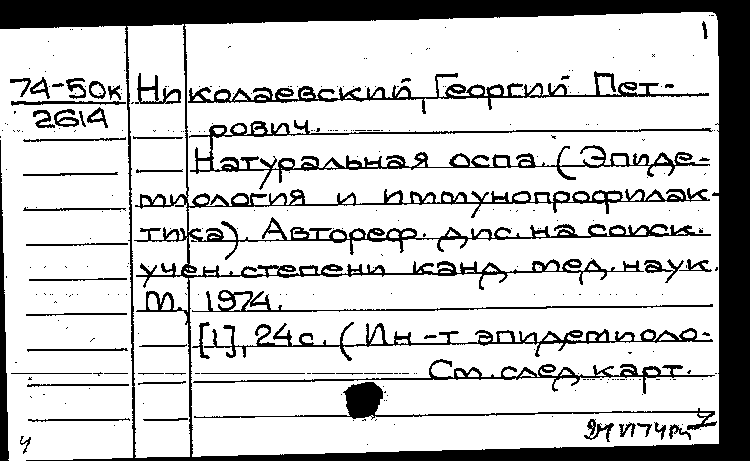 1
74-50к Николаевский, Георгий Пет-
2614 рович.
Натуральная оспа. (Эпиде-
миология и иммунопрофилак-
тика). Автореф. дис. на соиск.
учен. степени канд. мед. наук.
М., 1974.
[1], 24 с. (Ин-т эпидемиоло-
См. след. карт.